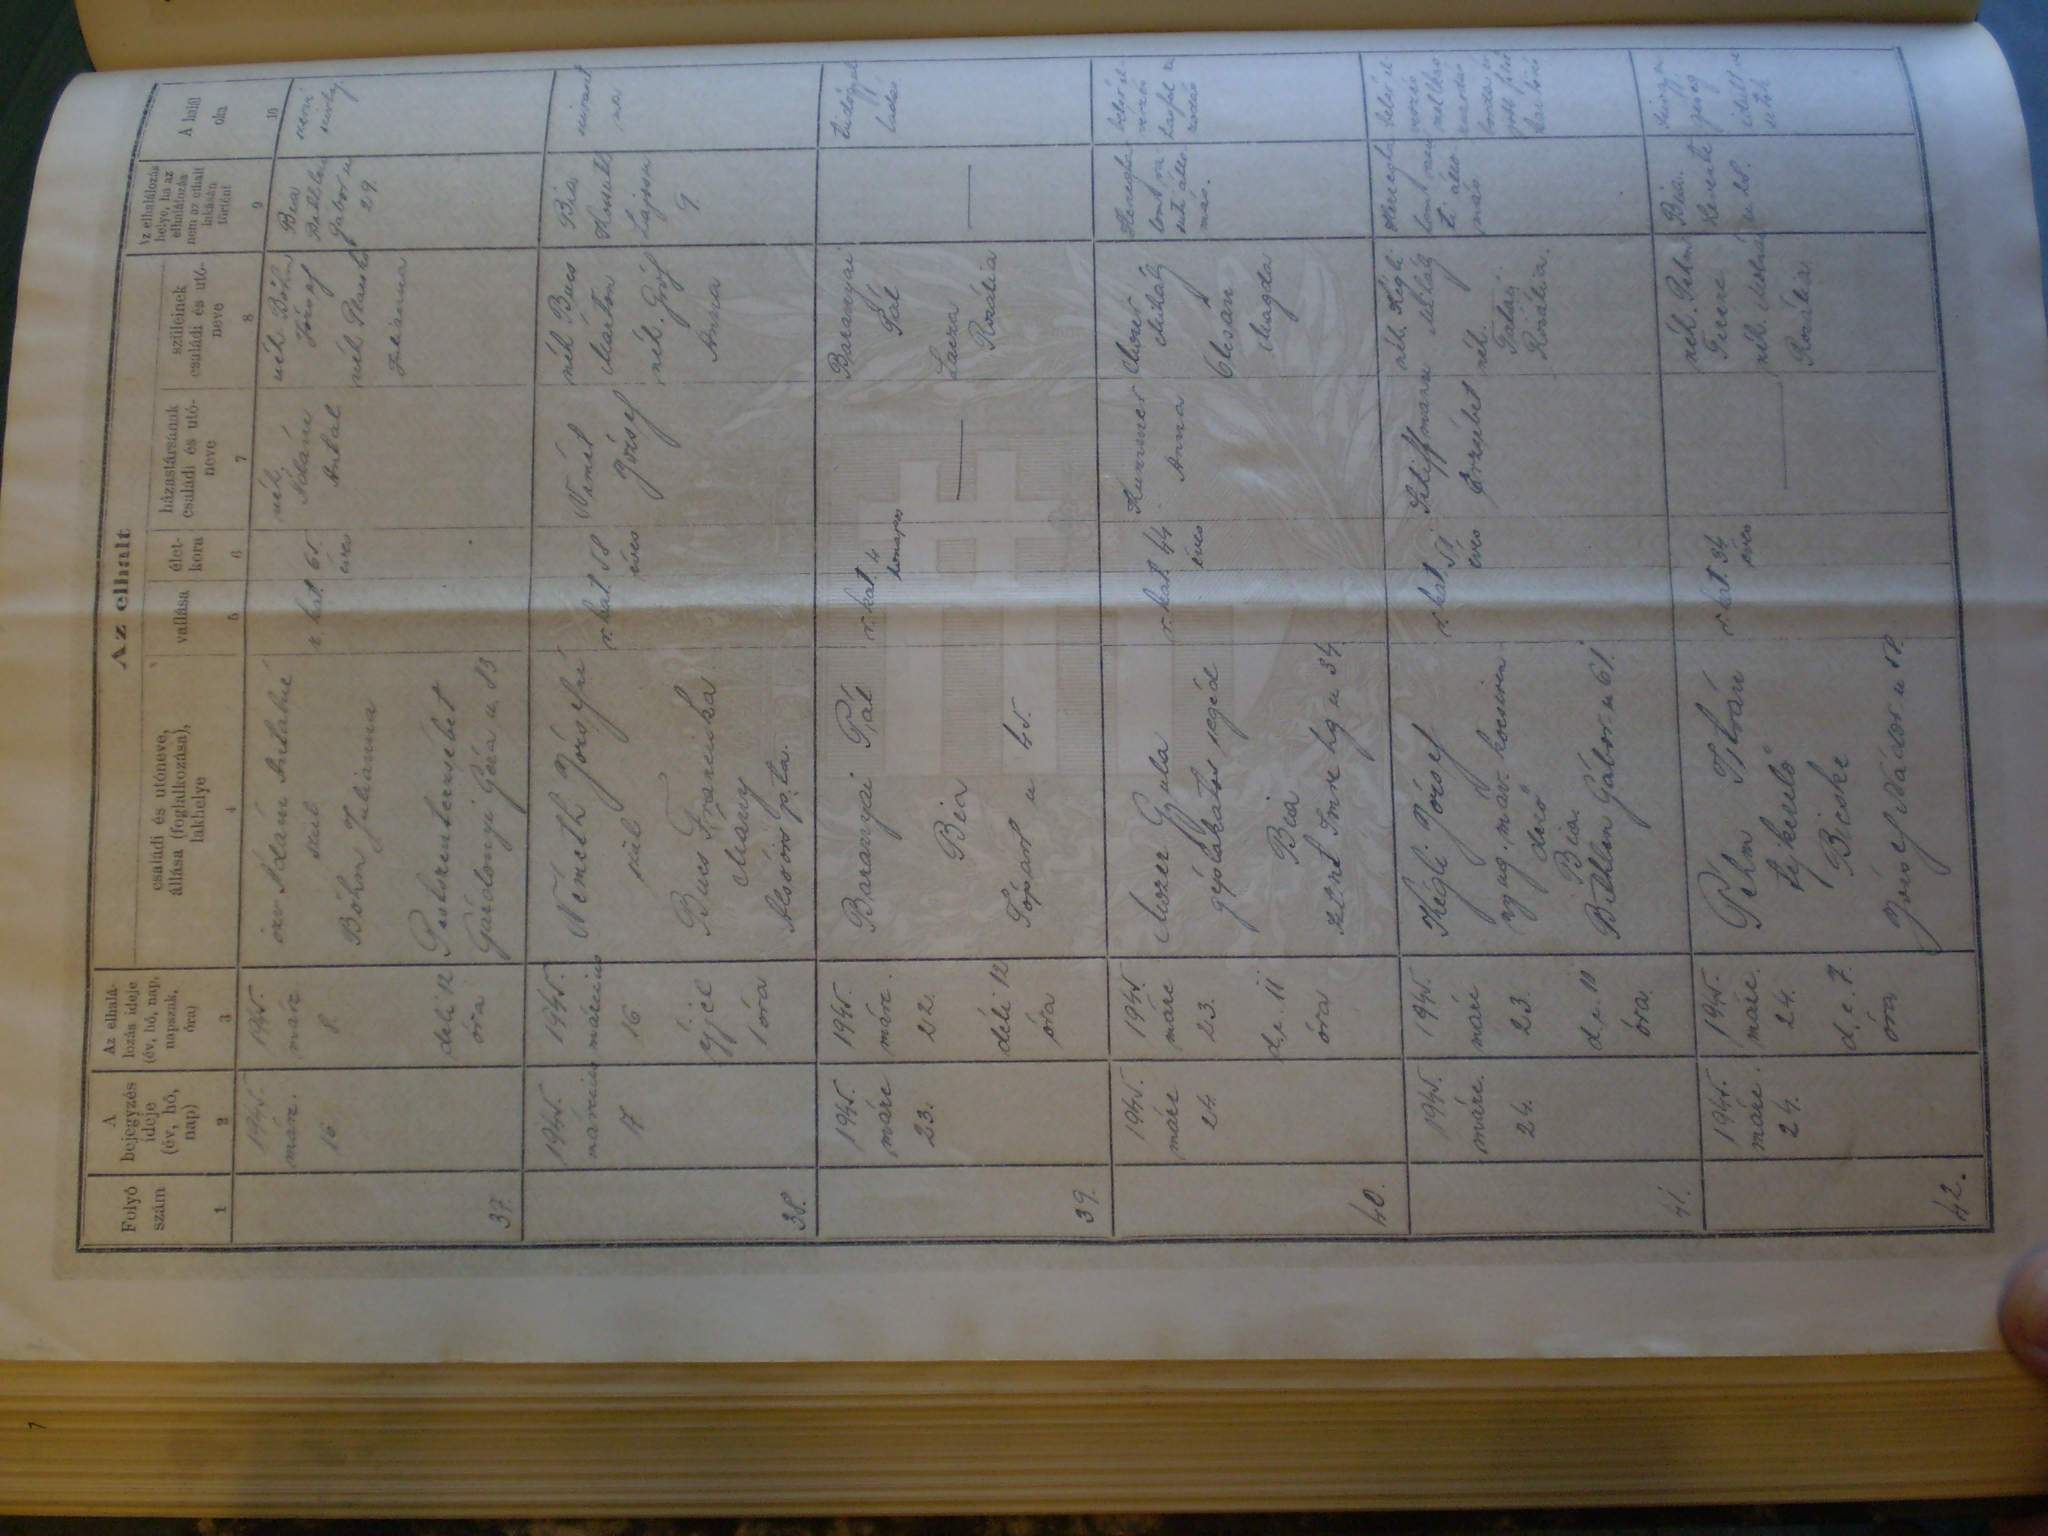 Az elhalt
Folyó
szám
A
bejegyzés
ideje
(év, hó,
nap)
Az elhalá-
lozás ideje
(év, hó, nap,
napszak,
óra)
családi és utóneve,
állása (foglalkozása),
lakhelye
vallása
élet-
kora
házastársának
családi és utó-
neve
szüleinek
családi és utó-
neve
Az elhalálozás
helye, ha az
elhalálozás
nem az elhalt
lakásán
történt
A halál
oka
1
2
3
4
5
6
7
8
9
10
37.
1945.
márc.
16.
1945.
márc
8.
déli 12
óra
özv Ádám Antalné
szül
Böhm Julianna
Pesthszenterzsébet
Gárdonyi Géza u. 83
r. kat.
65
éves
néh.
Ádám
Antal
néh. Böhm
József
néh
Julianna
Bia
Bethlen
Gábor u
29.
38.
1945.
március
17.
1945.
március
16
éjjel
1 óra
Németh Józsefné
szül
Bucs Franciska
Mány
Alsóörs pta.
r. kat.
58
éves
Német
József
néh Bucs
Márton
néh. Gróf
Anna
Bia
Kossuth
Lajos u
9.
39.
1945.
márc.
23.
1945.
márc.
22.
déli 12
óra
Baranyai Pál
Bia
Tópart u 45.
r. kat.
4
hónapos
Baranyai
Pál
Laura
Rozália
40.
1945.
márc
24.
1945.
márc
23.
d.e. 11
óra
Gyula
géplakatos segéd
Bia
Szent Imre hg u 34.
r. kat.
44
éves
Anna
Mihály
Magda
belső el-
vérzés
41.
1945.
márc.
24.
1945.
márc
23.
d.e. 11
óra.
Kégli József
nyug. máv. kocsiren-
dező
Bia
Bethlen Gábor u 61.
r. kat.
51
éves
Erzsébet
néh. Kégli
Mihály
néh.
Rozália.
belső el-
vérzés
42.
1945.
márc.
24.
1945.
márc.
24.
d.e. 7.
óra
Pehm István
tejkezelő
Bicske
József Nádor u 58.
r. kat.
34
éves
néh. Pehm
Ferenc
néh. Molnár
Rozália
Bia.
u. 28.